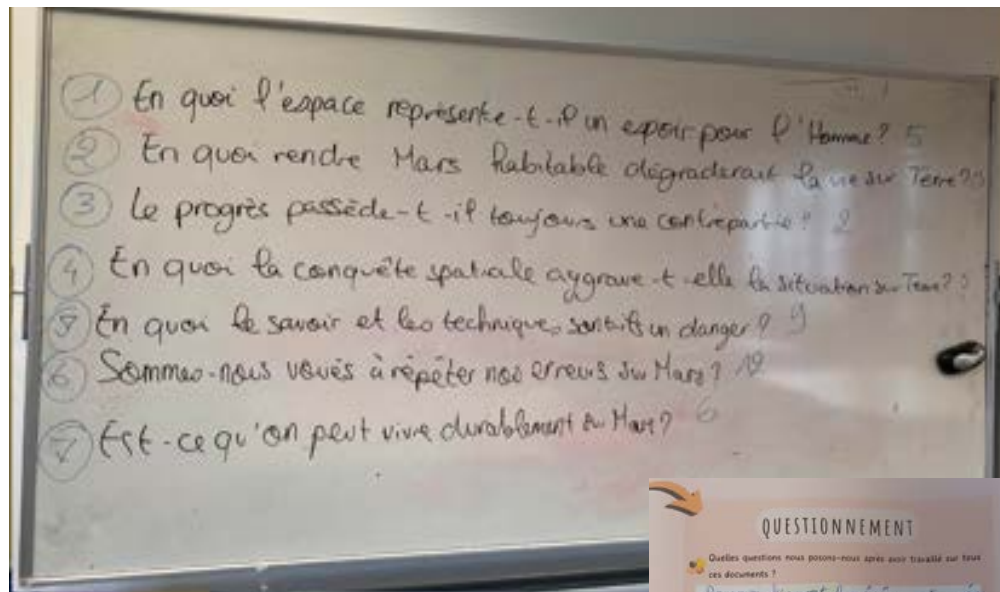 1 En quoi l'espace représente-t-il un espoir pour l'Homme? 5
2 En quoi rendre Mars habitable dégraderait la vie sur Terre?
3 Le progrès possède-t-il toujours une contrepartie? 2
4 En quoi la conquête spatiale aggrave-t-elle la situation sur Terre?
5 En quoi le savoir et les techniques sont-ils un danger? 9
6 Sommes-nous voués à répéter nos erreurs sur Mars?
7 Est-ce qu'on peut vivre durablement sur Mars? 6
QUESTIONNEMENT
Quelles questions nous posons-nous après avoir travaillé sur tous
ces documents ?